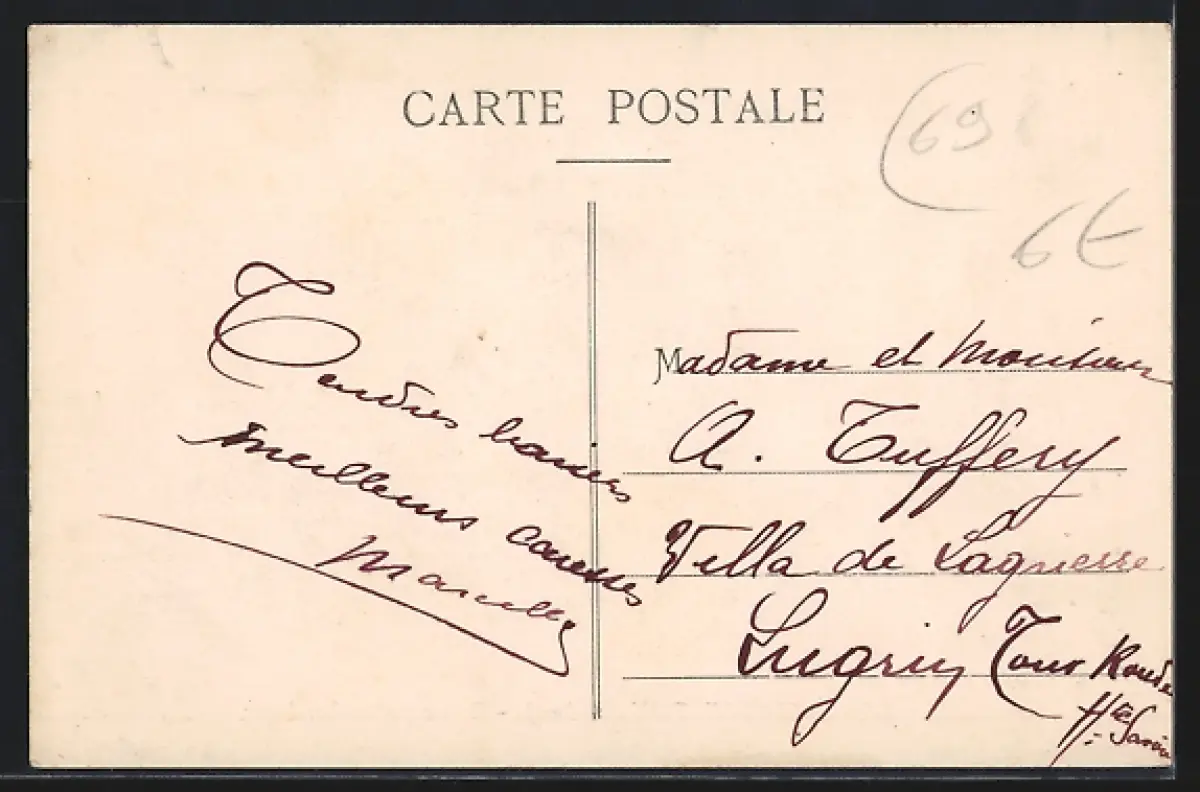 CARTE POSTALE
(69
6€
Tendres baisers
meilleures caresses
Marcelle
Madame et Monsieur
A. Tuffery
Villa de Laguerre
Lugrin Tour Ronde
Hte Savoie